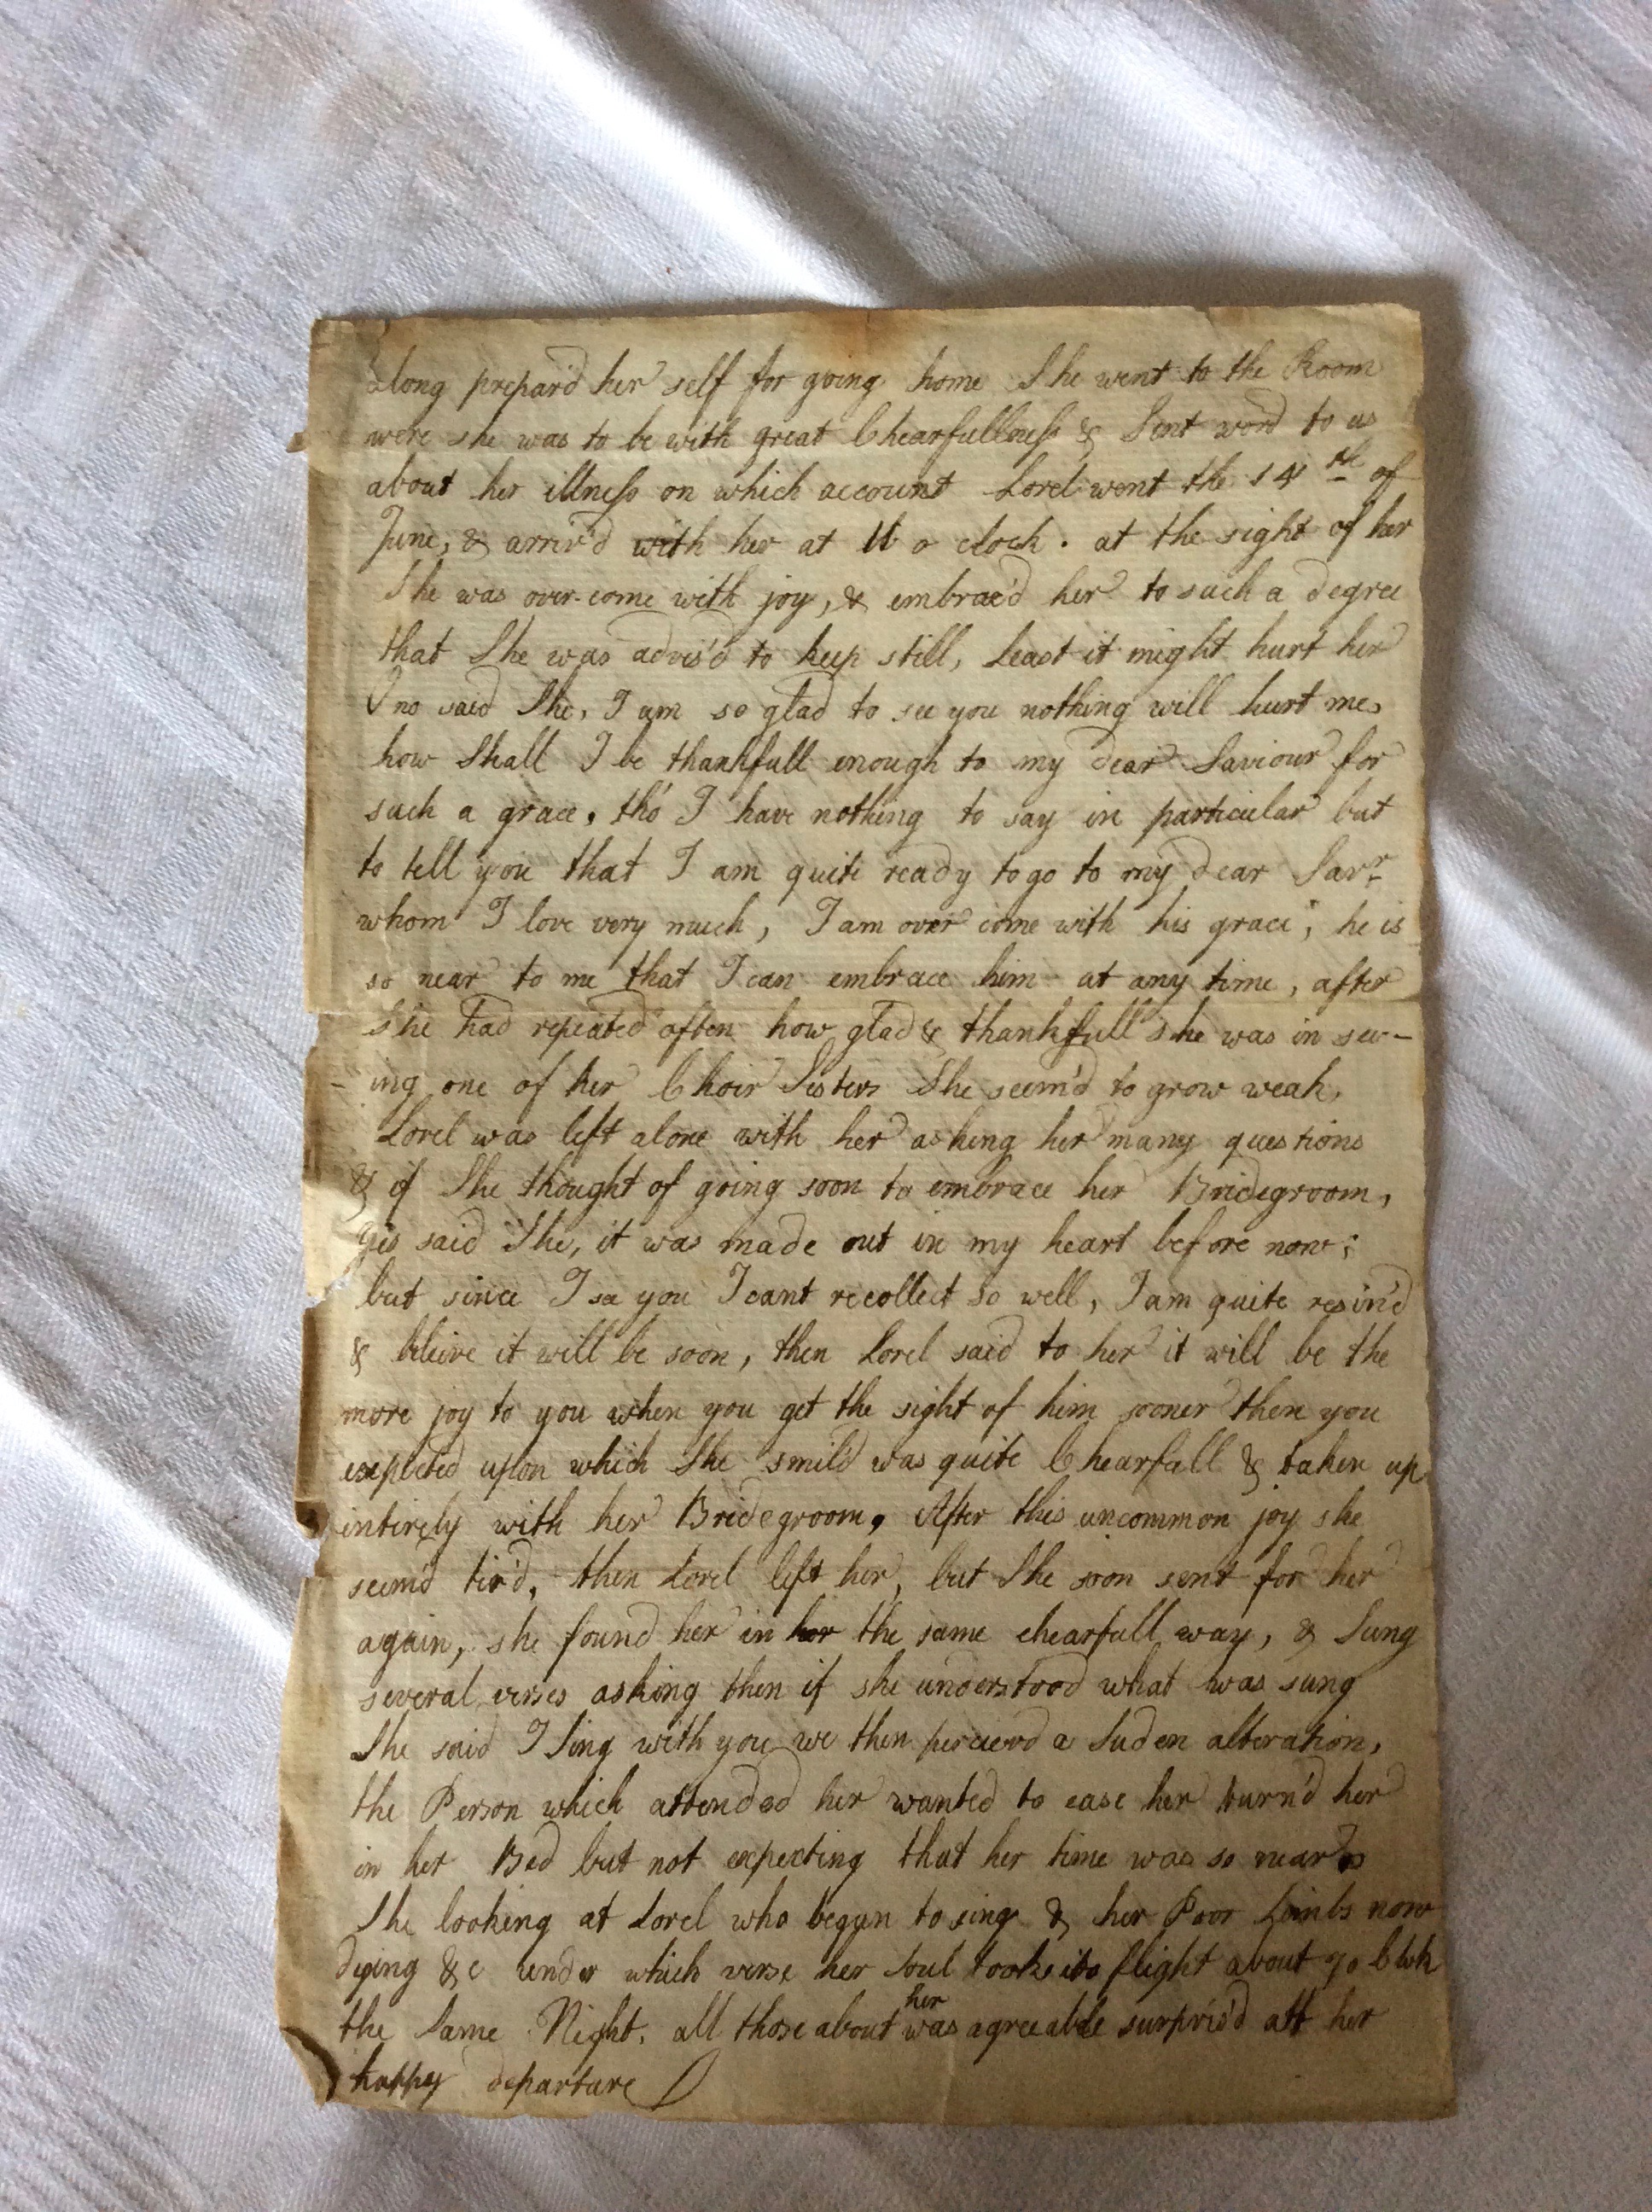 along prepar'd her self for going home She went to the Room
were she was to be with great Chearfullness & Sent word to us
about her illness on which account Lorel went the 14th of
June, & arriv'd with her at 11 o clock. at the sight of her
She was over-come with joy, & embrac'd her to such a degree
that She was advis'd to keep still, Least it might hurt her
O no said She, I am so glad to see you nothing will hurt me,
how Shall I be thankfull enough to my dear Saviour for
such a grace, tho' I have nothing to say in particular but
to tell you that I am quite ready to go to my dear Savr
whom I love very much, I am over come with his grace; he is
so near to me that I can embrace him at any time, after
She had repeated often how glad & thankfull she was in see-
-ing one of her Choir Sisters She seem'd to grow weak,
Lorel was left alone with her asking her many questions
& if She thought of going soon to embrace her Bridegroom,
yes said She, it was made out in my heart before now;
but since I see you I cant recollect so well, I am quite resin'd
& bleive it will be soon, then Lorel said to her it will be the
more joy to you when you get the sight of him sooner then you
expected upon which She smil'd was quite Chearfull & taken up
intirely with her Bridegroom, After this uncommon joy she
seem'd tir'd, then Lorel left her, but She soon sent for her
again, she found her in her the same chearfull way, & Sung
several verses asking then if she understood what was sung
She said I Sing with you we then perciev'd a Suden alteration,
the Person which attended her wanted to ease her turn'd her
in her Bed but not expecting that her time was so near
She looking at Lorel who begun to sing & her Poor Limbs now
dying &c under which verse her Soul took its flight about Clock
the Same Night, all those about her was agreeable surpris'd att her
happy departure